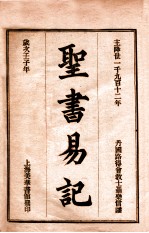 主降世一千九百十二年
丹國路得會教士華德信譯
聖書易記
歲次壬子年
上海美華書館發印